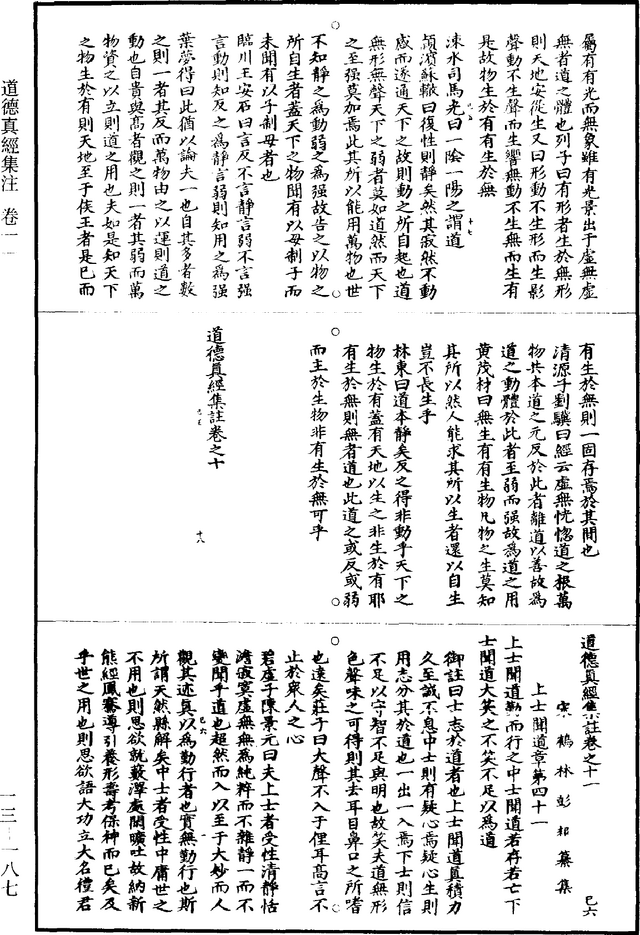 屬有有光而無象雖有光景出于虛無虛
無者道之體也列子曰有形者生於無形
則天地安從生又曰形動不生形而生影
聲動不生聲而生響無動不生無而生有
是故物生於有有生於無
涑水司馬光曰一陰一陽之謂道
潁濱蘇轍曰復性則靜矣然其寂然不動
感而遂通天下之故則動之所自起也道
無形無聲天下之弱者莫如道然而天下
之至强莫加焉此其所以能用萬物也世
不知靜之爲動弱之爲强故告之以物之
所自生者蓋天下之物聞有以母制子而
未聞有以子制母者也
臨川王安石曰言反不言靜言弱不言强
言動則知反之爲靜言弱則知用之爲强
葉夢得曰此猶以論夫一也自其多者數
之則一者其反而萬物由之以運則道之
動也自貴與高者觀之則一者其弱而萬
物資之以立則道之用也夫如是知天下
之物生於有則天地至于侯王者是已而
十七
有生於無則一固存焉於其間也
清源子劉驥曰經云虛無恍惚道之根萬
物共本道之元反於此者離道以善故爲
道之動體於此者至弱而强故爲道之用
黃茂材曰無生有有生物凡物之生莫知
其所以然人能求其所以生者還以自生
豈不長生乎
林東曰道本靜矣反之得非動乎天下之
物生於有蓋有天地以生之非生於有耶
有生於無則無者道也此道之或反或弱
而主於生物非有生於無可乎
道德眞經集註卷之十
十八
道德眞經集註卷之十一
己六
宋鶴林彭耜纂集
上士聞道章第四十一
上士聞道勤而行之中士聞道若存若亡下
士聞道大笑之不笑不足以爲道
御註曰士志於道者也上士聞道眞積力
久至誠不息中士則有疑心焉疑心生則
用志分其於道也一出一入焉下士則信
不足以守智不足與明也故笑夫道無形
色聲味之可得則其去耳目鼻口之所嗜
也遠矣莊子曰大聲不入于俚耳高言不
止於衆人之心
碧虛子陳景元曰夫上士者受性清靜恬
澹寂寞虛無無爲純粹而不雜靜一而不
變聞乎道也超然而入以至于大妙而人
觀其迹眞以爲勤行者也實無勤行也斯
所謂天然縣解矣中士者受性中庸世之
不用也則思欲就藪澤處閒曠吐故納新
熊經鳳騫導引養形壽考保神而已矣及
乎世之用也則思欲語大功立大名禮君
道德真經集注 卷一一
一三—一八七